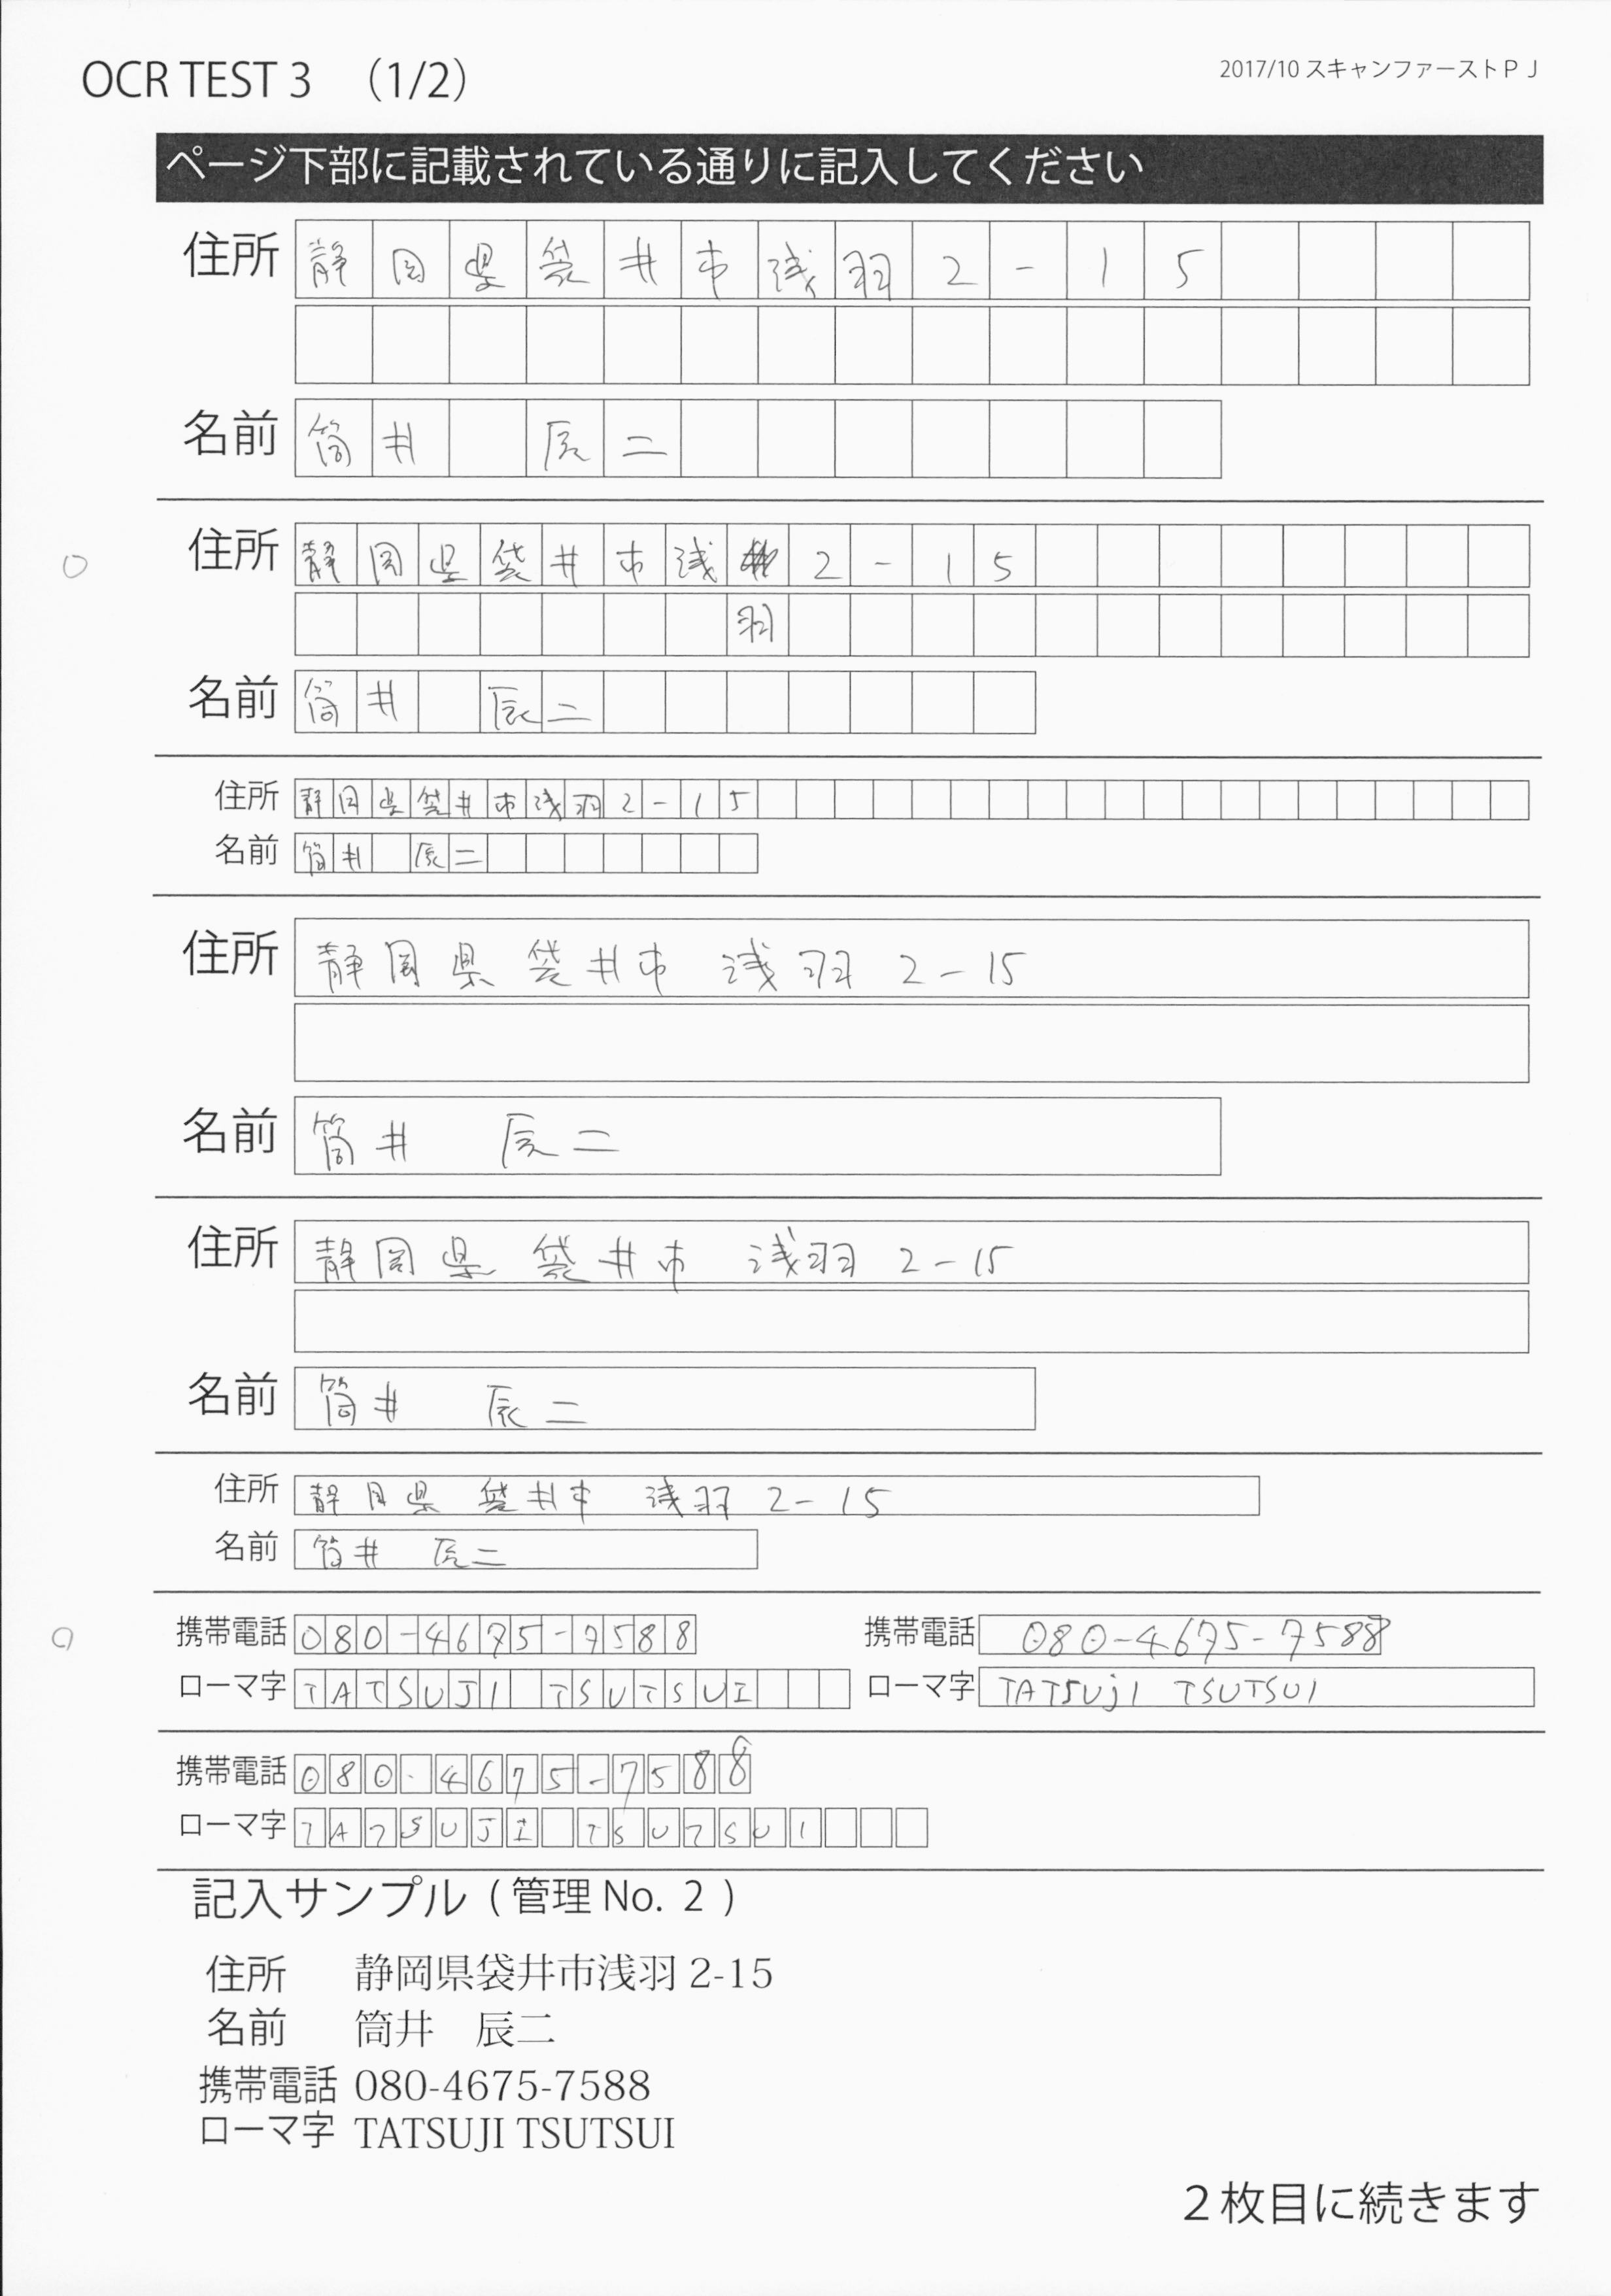 OCR TEST 3 （1/2）
2017/10 スキャンファーストＰＪ
ページ下部に記載されている通りに記入してください
住所 静岡県袋井市浅羽2-15
名前 筒井 辰二
住所 静岡県袋井市浅 2-15
羽
名前 筒井 辰二
住所 静岡県袋井市浅羽2-15
名前 筒井 辰二
住所 静岡県 袋井市 浅羽 2-15
名前 筒井 辰二
住所 静岡県 袋井市 浅羽 2-15
名前 筒井 辰二
住所 静岡県 袋井市 浅羽 2-15
名前 筒井 辰二
携帯電話 080-4675-7588 携帯電話 080-4675-7588
ローマ字 TATSUJI TSUTSUI ローマ字 TATSUjI TSUTSUI
携帯電話 080-4675-7588
ローマ字 TATSUJI TSUTSUI
記入サンプル（管理 No. 2 ）
住所 静岡県袋井市浅羽 2-15
名前 筒井 辰二
携帯電話 080-4675-7588
ローマ字 TATSUJI TSUTSUI
２枚目に続きます